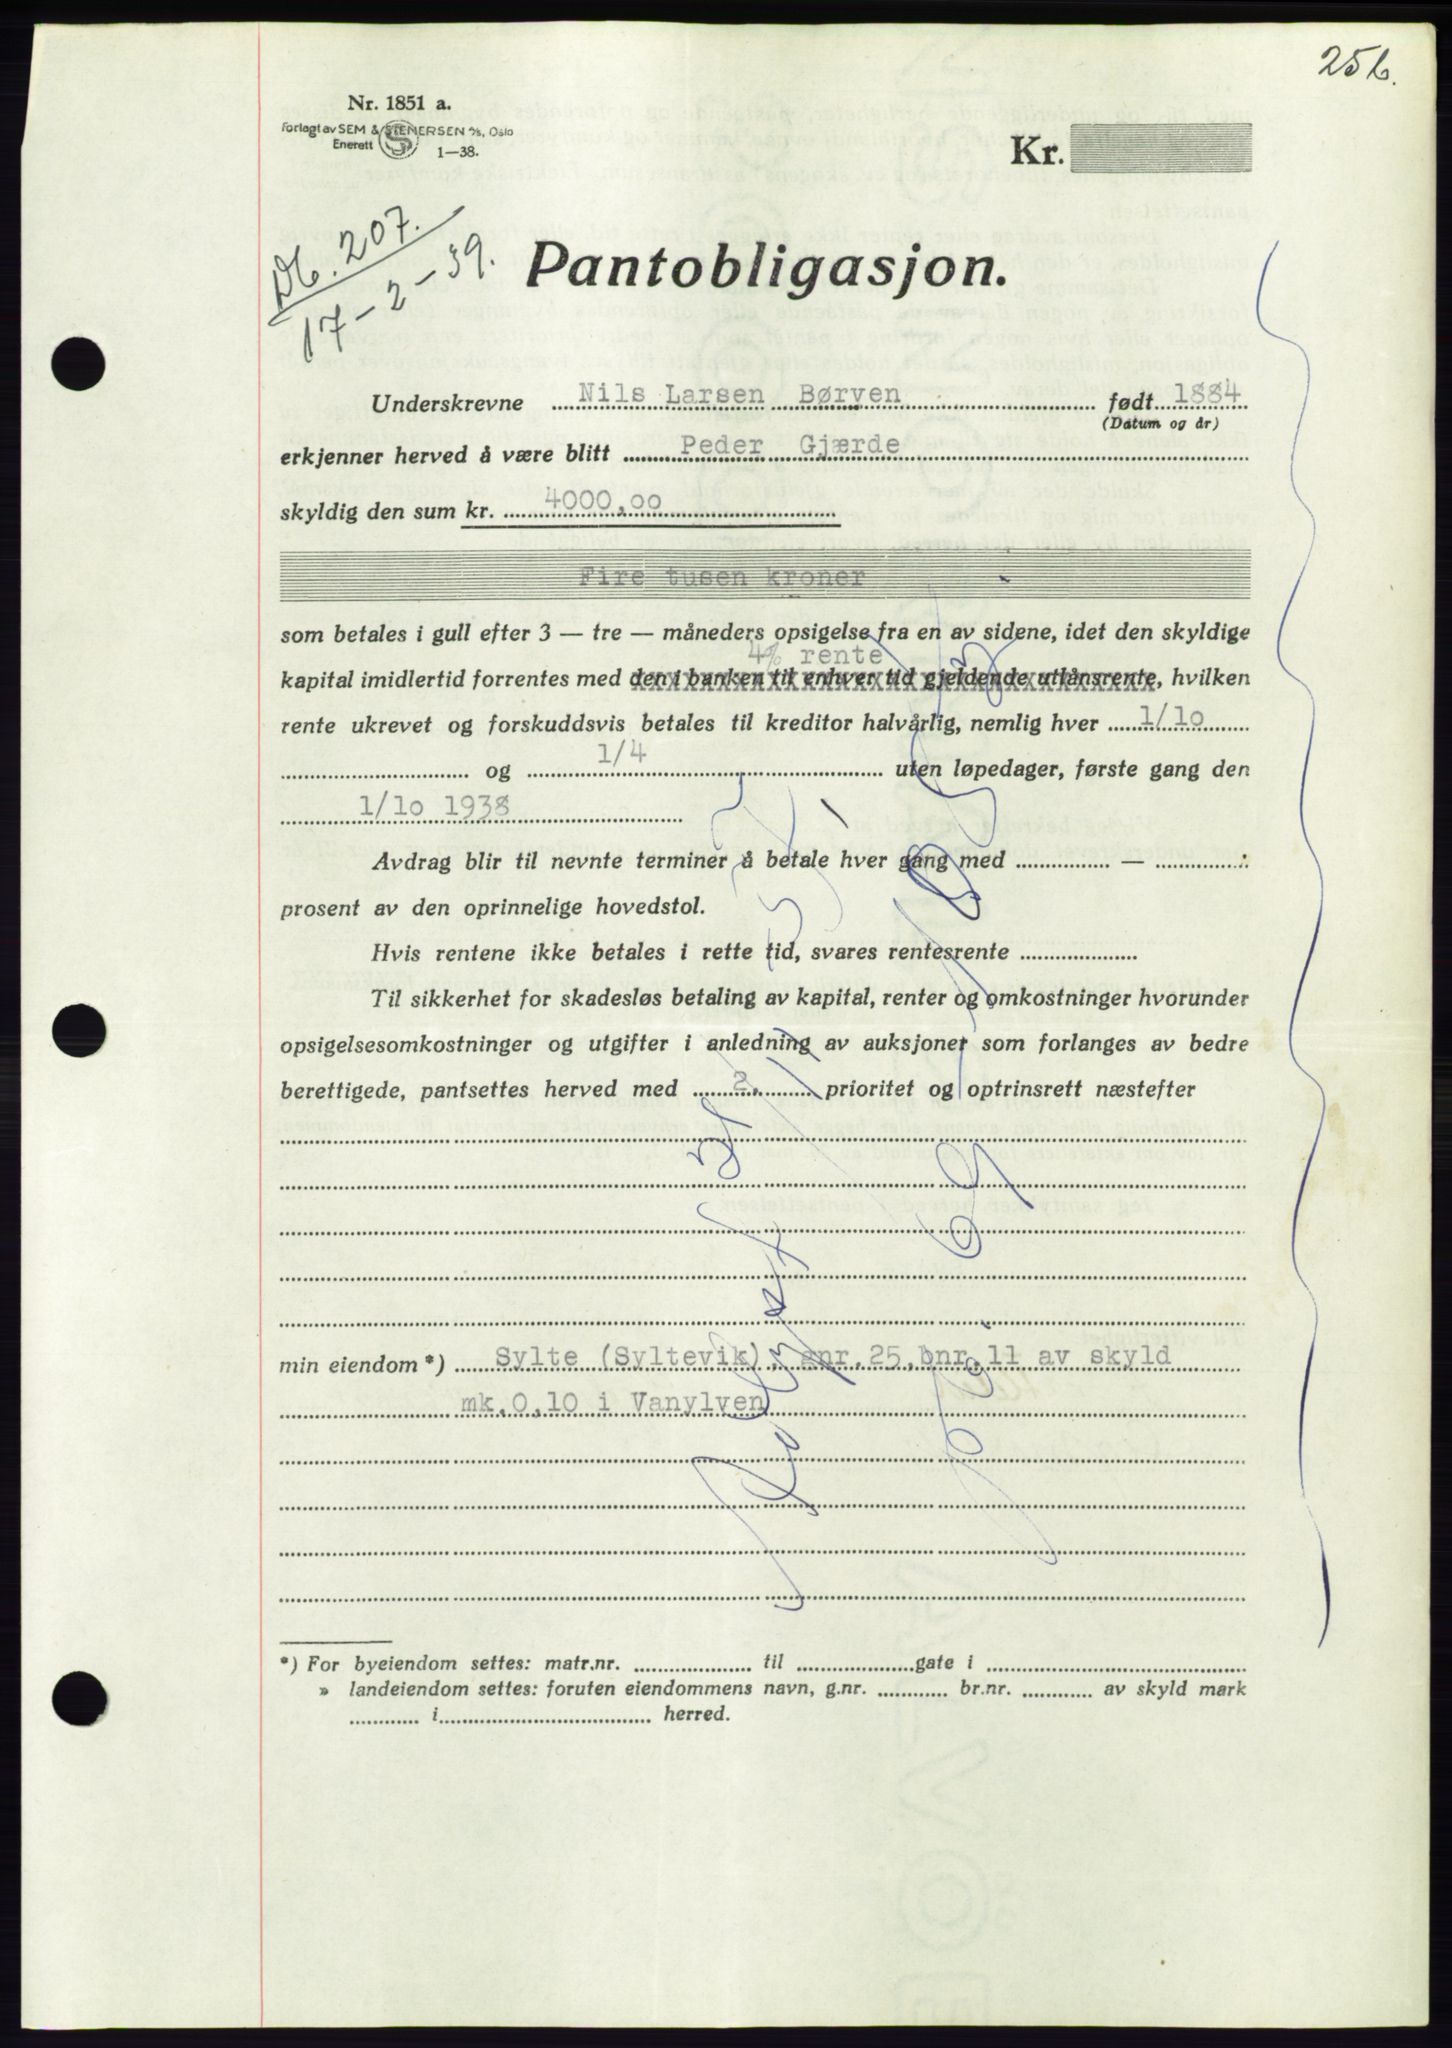 256.
Nr. 1851 a.
Forlagt av SEM & STENERSEN A/S, Oslo
Enerett 1—38.
Kr.
Db. 207.
17-2-39.
Pantobligasjon.
Underskrevne Nils Larsen Børven født 1884
(Datum og år)
erkjenner herved å være blitt Peder Gjærde
skyldig den sum kr. 4000,00
Fire tusen kroner
som betales i gull efter 3 — tre — måneders opsigelse fra en av sidene, idet den skyldige
4% rente
kapital imidlertid forrentes med den i banken til enhver tid gjeldende utlånsrente, hvilken
rente ukrevet og forskuddsvis betales til kreditor halvårlig, nemlig hver 1/10
og 1/4 uten løpedager, første gang den
1/10 1938
Avdrag blir til nevnte terminer å betale hver gang med — :
prosent av den oprinnelige hovedstol.
Hvis rentene ikke betales i rette tid, svares rentesrente
Til sikkerhet for skadesløs betaling av kapital, renter og omkostninger hvorunder
opsigelsesomkostninger og utgifter i anledning av auksjoner som forlanges av bedre
berettigede, pantsettes herved med 2. prioritet og optrinsrett næstefter
min eiendom *) Sylte (Syltevik), gnr. 25, bnr. 11 av skyld
mk. 0,10 i Vanylven
*) For byeiendom settes: matr.nr. til gate i
» landeiendom settes: foruten eiendommens navn, g.nr. br.nr. av skyld mark
i herred.